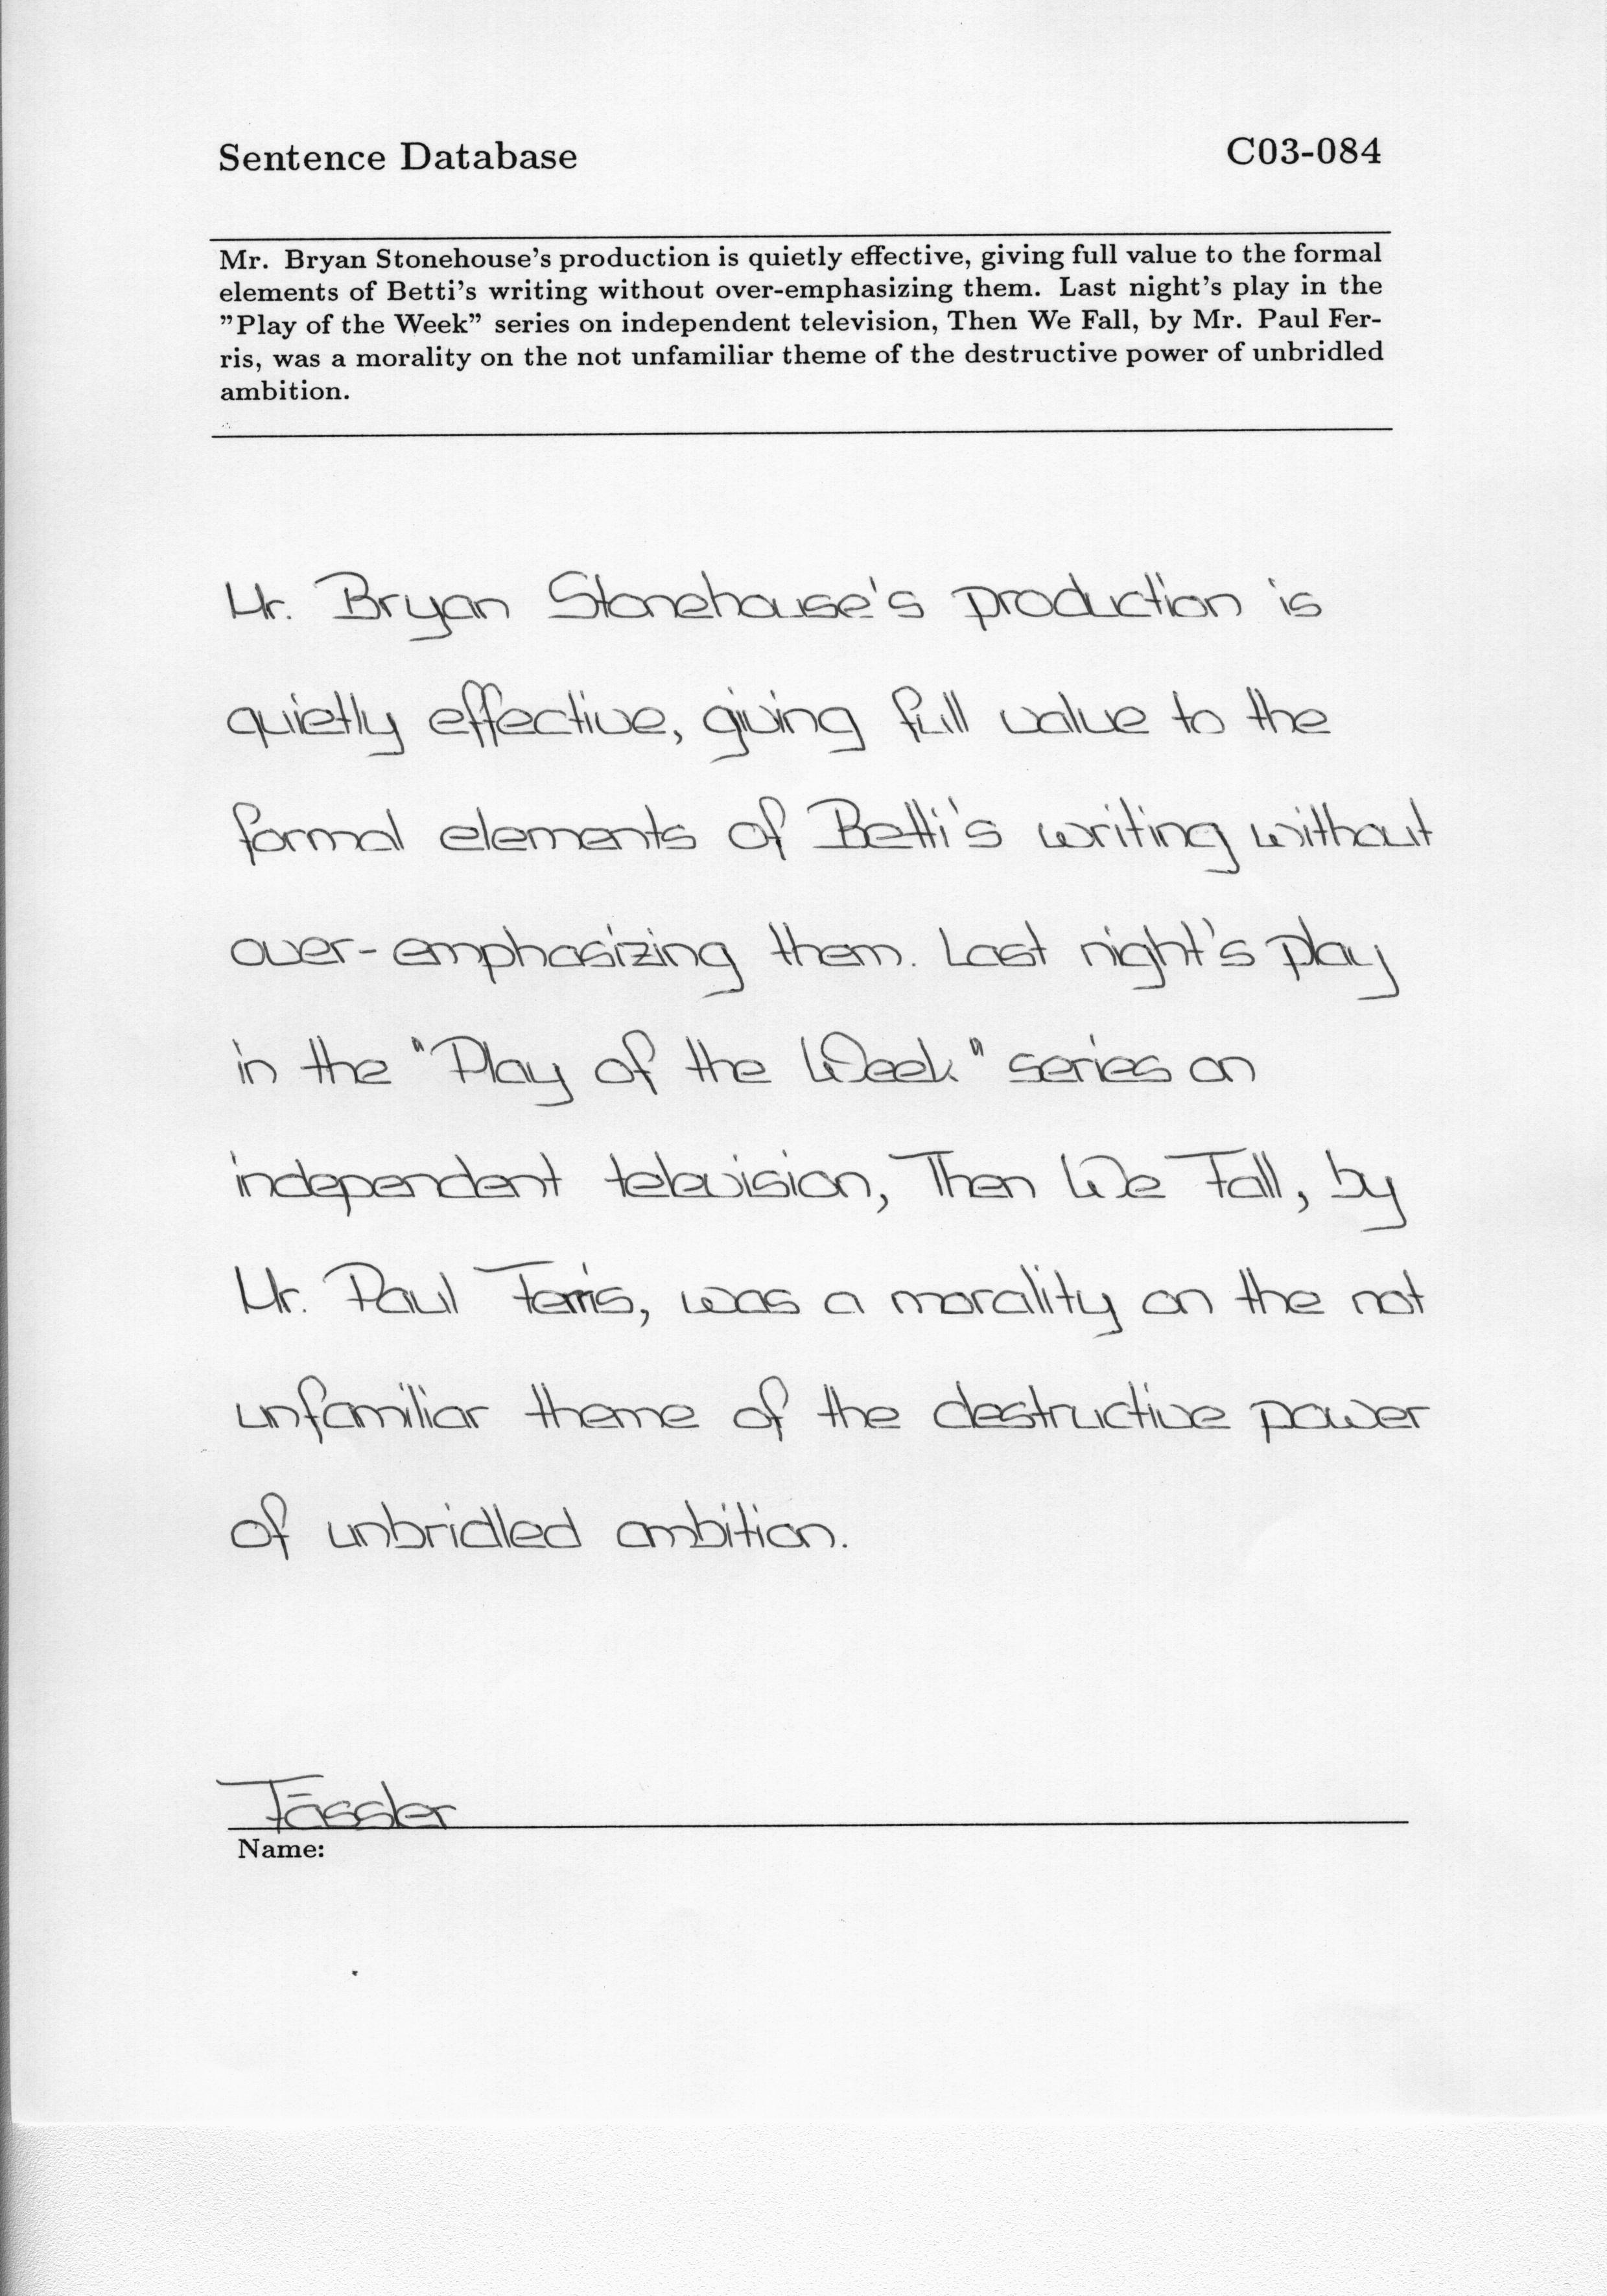 Sentence Database C03-084
Mr. Bryan Stonehouse's production is quietly effective, giving full value to the formal
elements of Betti's writing without over-emphasizing them. Last night's play in the
"Play of the Week" series on independent television, Then We Fall, by Mr. Paul Fer-
ris, was a morality on the not unfamiliar theme of the destructive power of unbridled
ambition.
Mr. Bryan Stonehouse's production is
quietly effective, giving full value to the
formal elements of Betti's writing without
over-emphasizing them. Last night's play
in the "Play of the Week" series on
independent television, Then We Fall, by
Mr. Paul Ferris, was a morality on the not
unfamiliar theme of the destructive power
of unbridled ambition.
Fässler
Name: